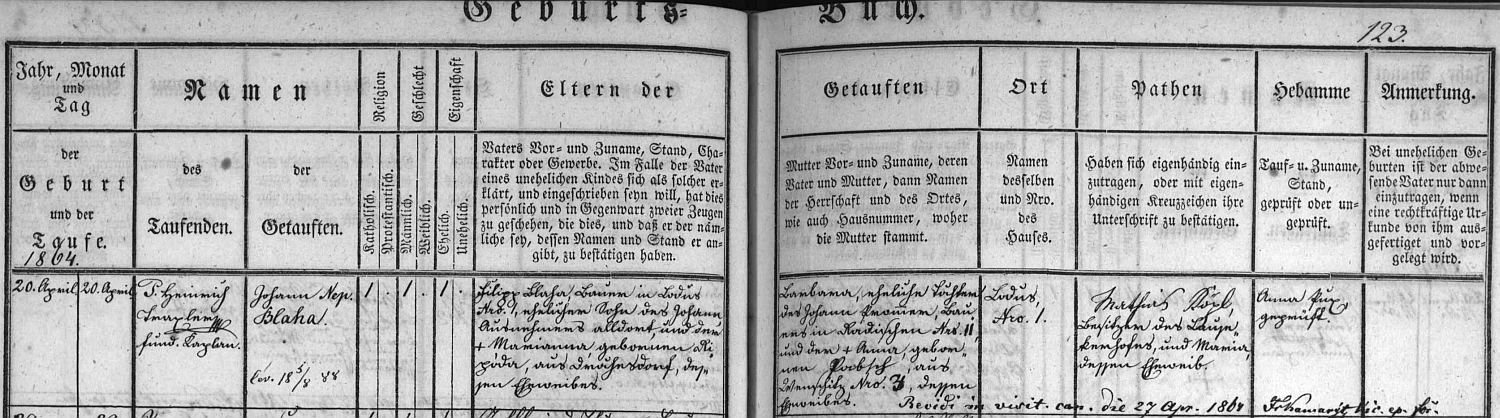 Geburts-
Buch.
123.
Jahr, Monat
und
Tag
der
Geburt
und der
Taufe.
1864.
Namen
des
Taufenden.
der
Getauften.
Religion
Katholisch.
Protestantisch.
Geschlecht
Männlich.
Weiblich.
Eigenschaft
Ehelich.
Unehelich.
Eltern der
Vaters Vor- und Zuname, Stand, Cha-
rakter oder Gewerbe. Im Falle der Vater
eines unehelichen Kindes sich als solcher er-
klärt, und eingeschrieben seyn will, hat dies
persönlich und in Gegenwart zweier Zeugen
zu geschehen, die dies, und daß er der näm-
liche sey, dessen Namen und Stand er an-
gibt, zu bestätigen haben.
Getauften
Mutter Vor- und Zuname, deren
Vater und Mutter, dann Namen
der Herrschaft und des Ortes,
wie auch Hausnummer, woher
die Mutter stammt.
Ort
Namen
desselben
und Nro.
des
Hauses.
Pathen
Haben sich eigenhändig ein-
zutragen, oder mit eigen-
händigen Kreuzzeichen ihre
Unterschrift zu bestätigen.
Hebamme
Tauf- u. Zuname,
Stand,
geprüft oder un-
geprüft.
Anmerkung.
Bei unehelichen Ge-
burten ist der abwe-
sende Vater nur dann
einzutragen, wenn
eine rechtkräftige Ur-
kunde von ihm aus-
gefertiget und vor-
gelegt wird.
20. April
20. April
P. Heinrich
fund. Kaplan.
Johann Nep.
Blaha.
1
1
1
Filipp Blaha, Bauer in Lodus
Nro. 1, ehelicher Sohn des Johann
Ausnehmers alldort, und der
+ Marianna gebornen
aus des-
sen Eheweibes.
Barbara, eheliche Tochter
des Johann Bau-
ers in Radischen Nro. 11,
und der + Anna, gebor-
nen aus
Wenschitz Nro. 3, dessen
Eheweibes.
Lodus,
Nro. 1.
Mathias
Besitzer des
und Maria,
dessen Eheweib.
Anna
geprüft
Revidi in visit. can. die 27 Apr. 1864